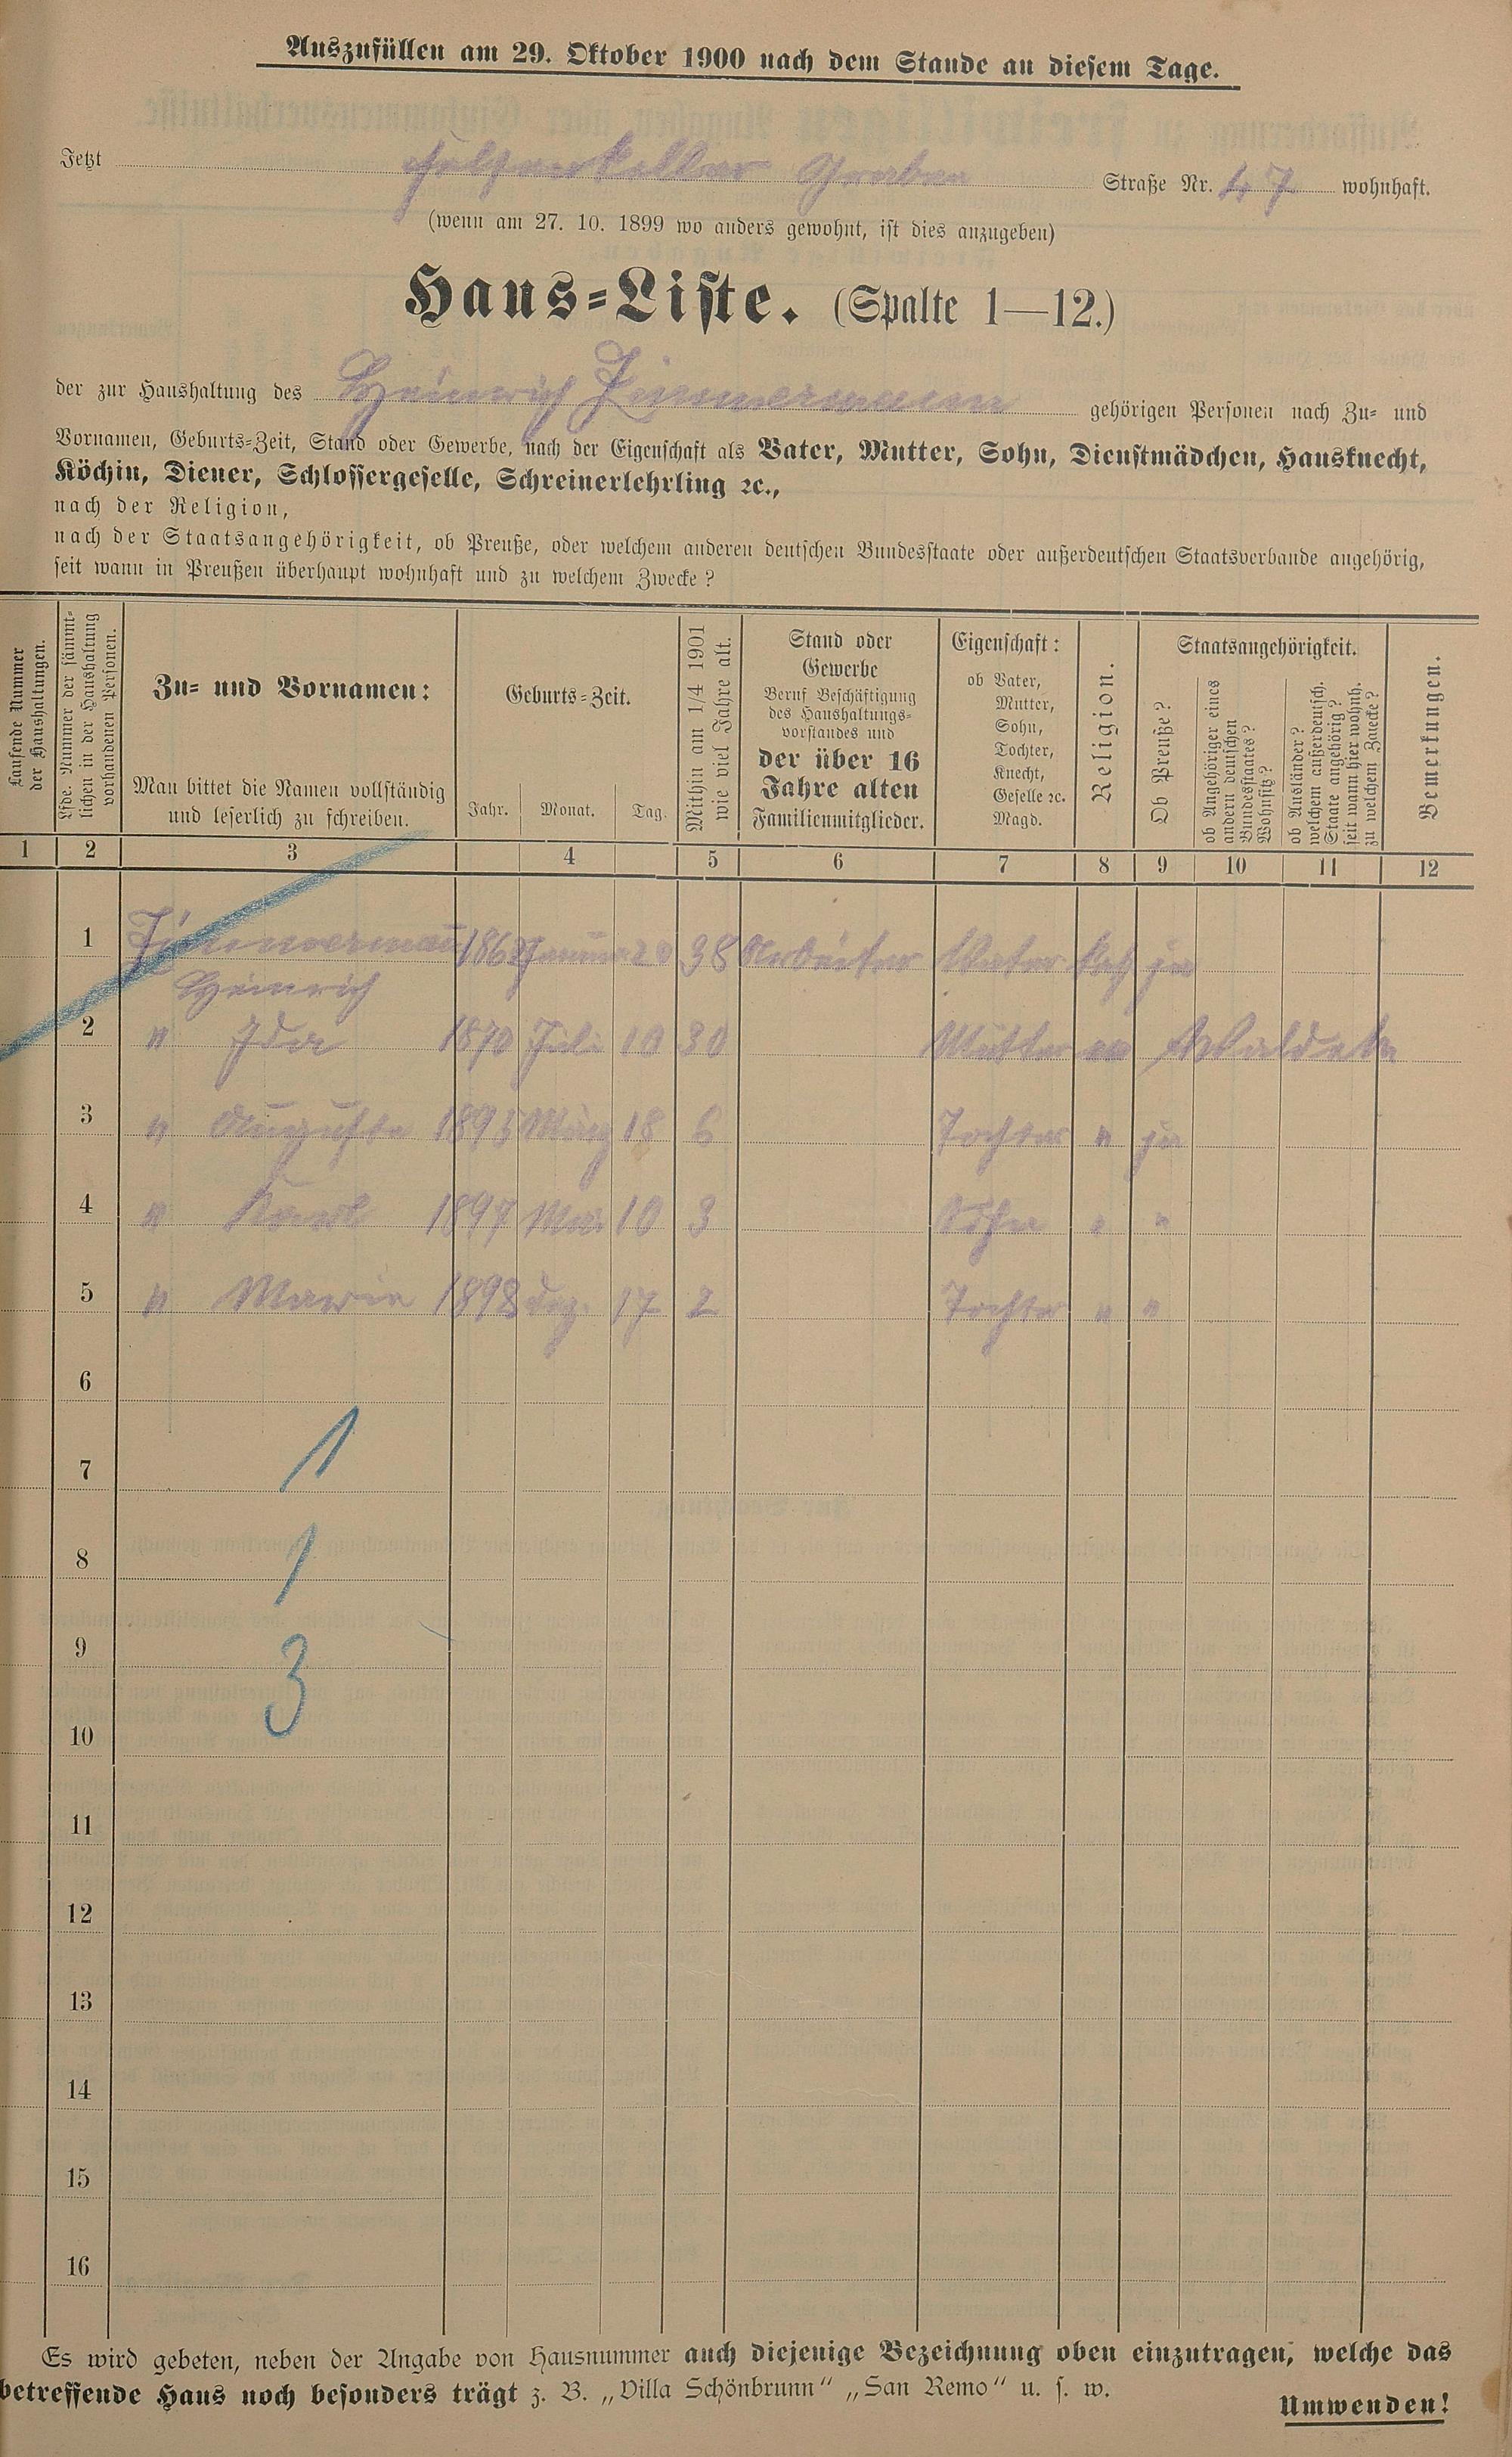 Auszufüllen am 29. Oktober 1900 nach dem Stande an diesem Tage.
Jetzt Felsenkeller Graben Straße Nr. 47 wohnhaft.
(wenn am 27. 10. 1899 wo anders gewohnt, ist dies anzugeben)
Haus=Liste. (Spalte 1—12.)
der zur Haushaltung des Heinrich Zimmermann gehörigen Personen nach Zu= und
Vornamen, Geburts=Zeit, Stand oder Gewerbe, nach der Eigenschaft als Vater, Mutter, Sohn, Dienstmädchen, Hausknecht,
Köchin, Diener, Schlossergeselle, Schreinerlehrling ꝛc.,
nach der Religion,
nach der Staatsangehörigkeit, ob Preuße, oder welchem anderen deutschen Bundesstaate oder außerdeutschen Staatsverbande angehörig,
seit wann in Preußen überhaupt wohnhaft und zu welchem Zwecke?
Laufende Nummer
der Haushaltungen.
Lfde. Nummer der sämmt=
lichen in der Haushaltung
vorhandenen Personen.
Zu= und Vornamen:
Man bittet die Namen vollständig
und leserlich zu schreiben.
Geburts=Zeit.
Jahr. Monat. Tag.
Mithin am 1/4 1901
wie viel Jahre alt.
Stand oder
Gewerbe
Beruf Beschäftigung
des Haushaltungs=
vorstandes und
der über 16
Jahre alten
Familienmitglieder.
Eigenschaft:
ob Vater,
Mutter,
Sohn,
Tochter,
Knecht,
Geselle ꝛc.
Magd.
Religion.
Staatsangehörigkeit.
Ob Preuße?
ob Angehöriger eines
andern deutschen
Bundesstaates?
Wohnsitz?
ob Ausländer?
welchem außerdeutsch.
Staate angehörig?
seit wann hier wohnh.
zu welchem Zwecke?
Bemerkungen.
1 2 3 4 5 6 7 8 9 10 11 12
1 Zimmermann 1862 Januar 20 38 Arbeiter Vater kath ja
Heinrich
2 " Ida 1870 Juli 10 30 Mutter ev Waldeck
3 " Auguste 1895 März 18 6 Tochter " ja
4 " Karl 1897 Mai 10 3 Sohn " "
5 " Marie 1898 Dez. 17 2 Tochter " "
6
7 1
8 1
9 3
10
11
12
13
14
15
16
Es wird gebeten, neben der Angabe von Hausnummer auch diejenige Bezeichnung oben einzutragen, welche das
betreffende Haus noch besonders trägt z. B. „Villa Schönbrunn“ „San Remo“ u. s. w.
Umwenden!